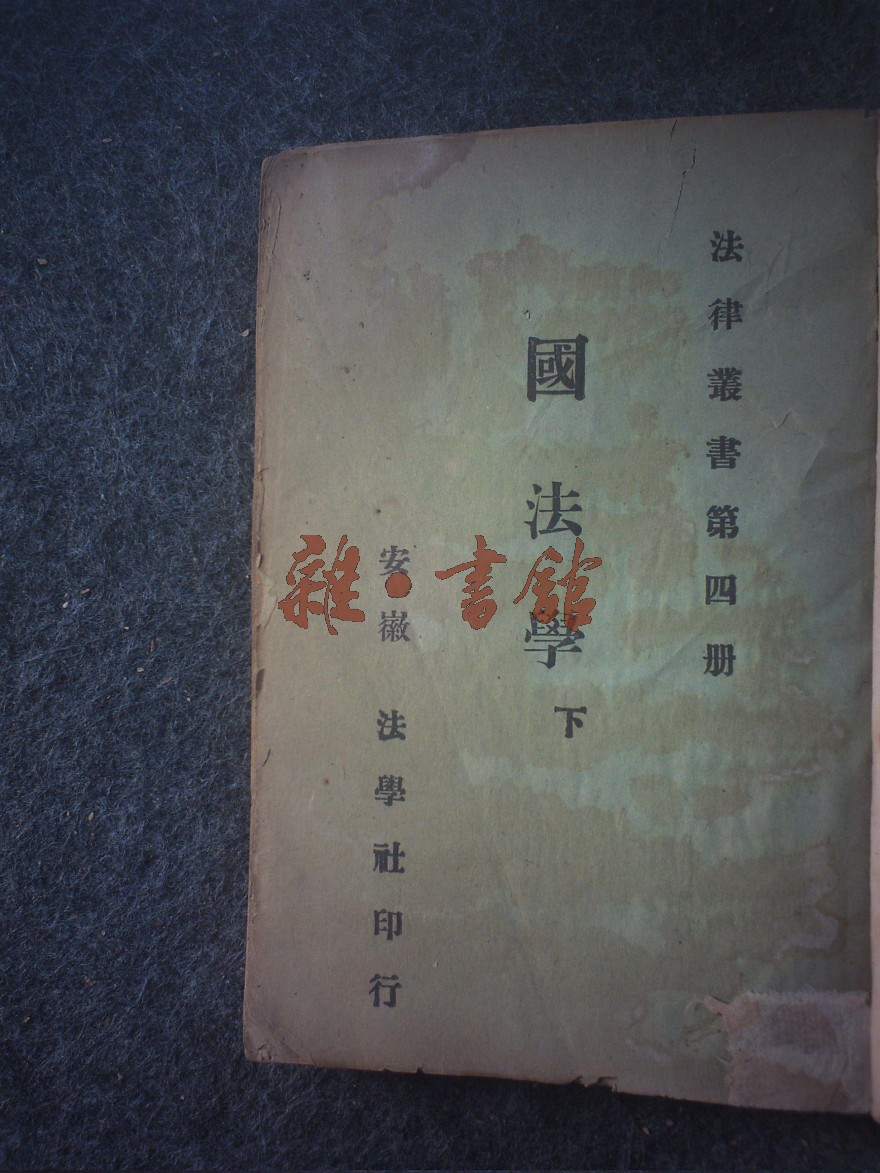 法律叢書第四册
國法學下
安徽法學社印行
雜·書館